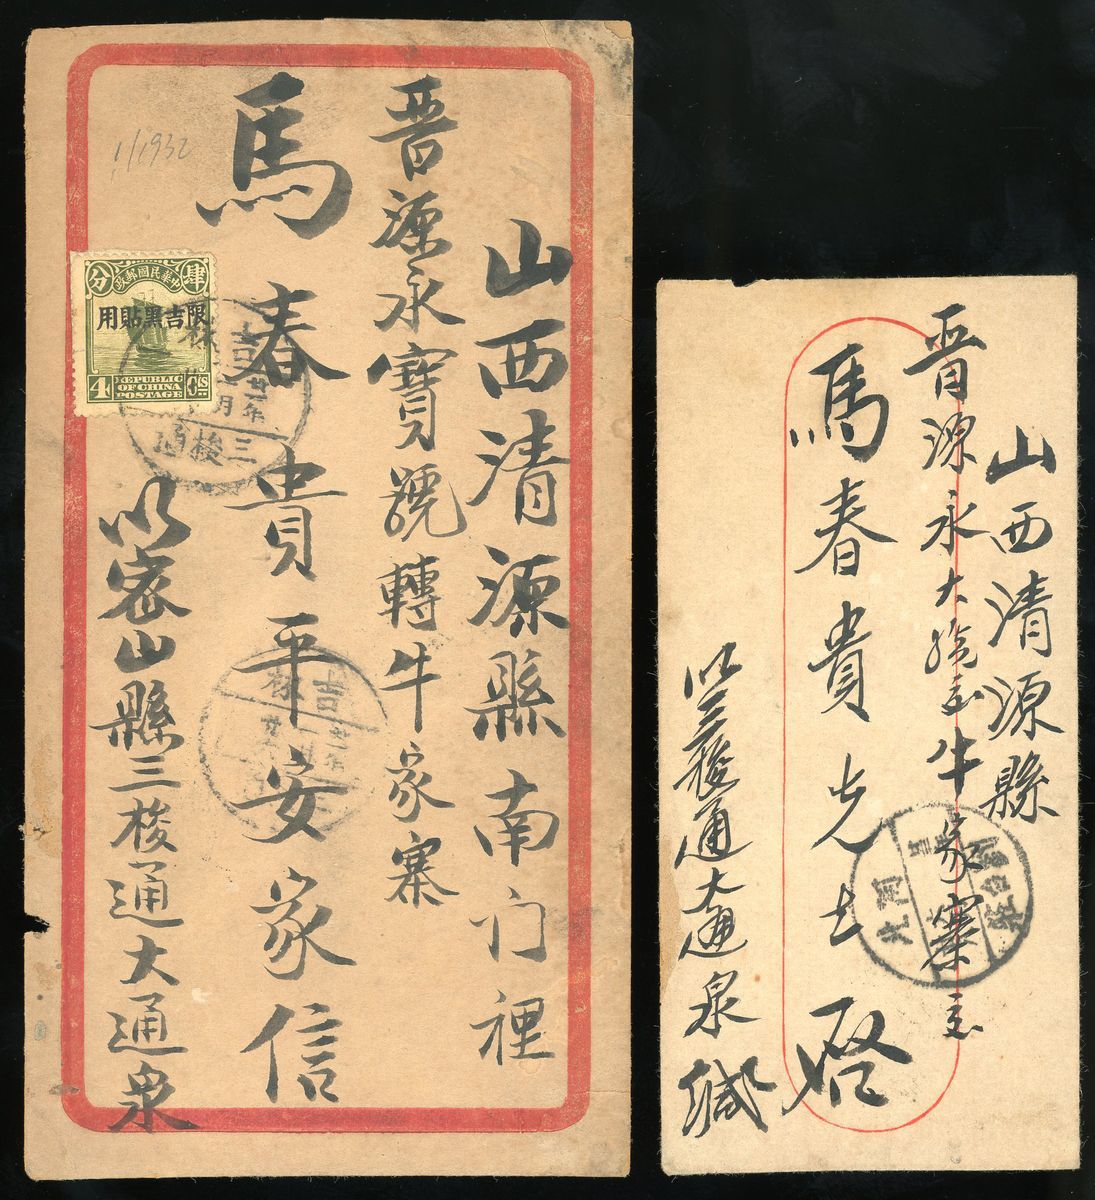 山西清源縣南门裡
晋源永寶號轉牛家寨
馬春貴平安家信
以密山縣三梭通大通泉
1/1932
中華民國郵政
肆
分
限吉黑貼用
4
CTS
REPUBLIC
OF CHINA
POSTAGE
吉林
廿一年
月
三梭通
吉林
廿一年
山西清源縣
晋源永大號交牛家寨交
馬春貴先生啓
以三梭通大通泉緘